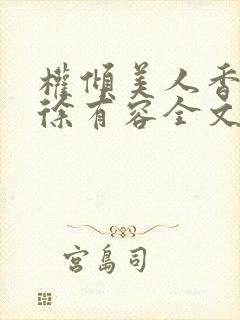 權傾美人香
徐有容全文
宮島司